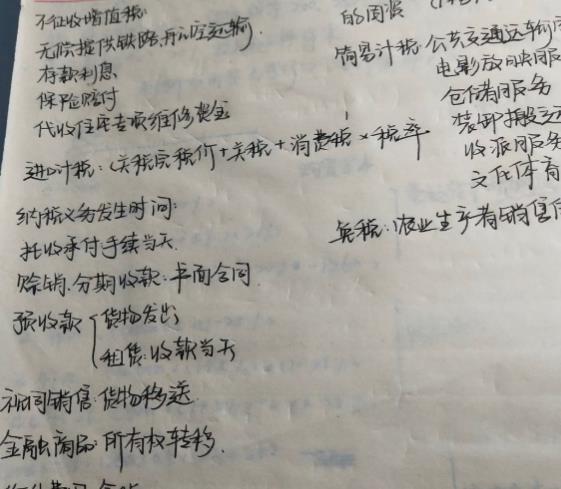 不征收增值税:
无偿提供铁路、航空运输
存款利息
保险赔付
代收住宅专项维修资金
进口计税:(关税完税价+关税+消费税×税率
纳税义务发生时间:
托收承付手续当天.
赊销、分期收款:书面合同
预收款 货物发出
租赁:收款当天
视同销售:货物移送
金融商品:所有权转移.
简易计税:公共交通运输
电影放映服
仓储服务
装卸搬运
收派服务
文化体育
免税:农业生产者销售